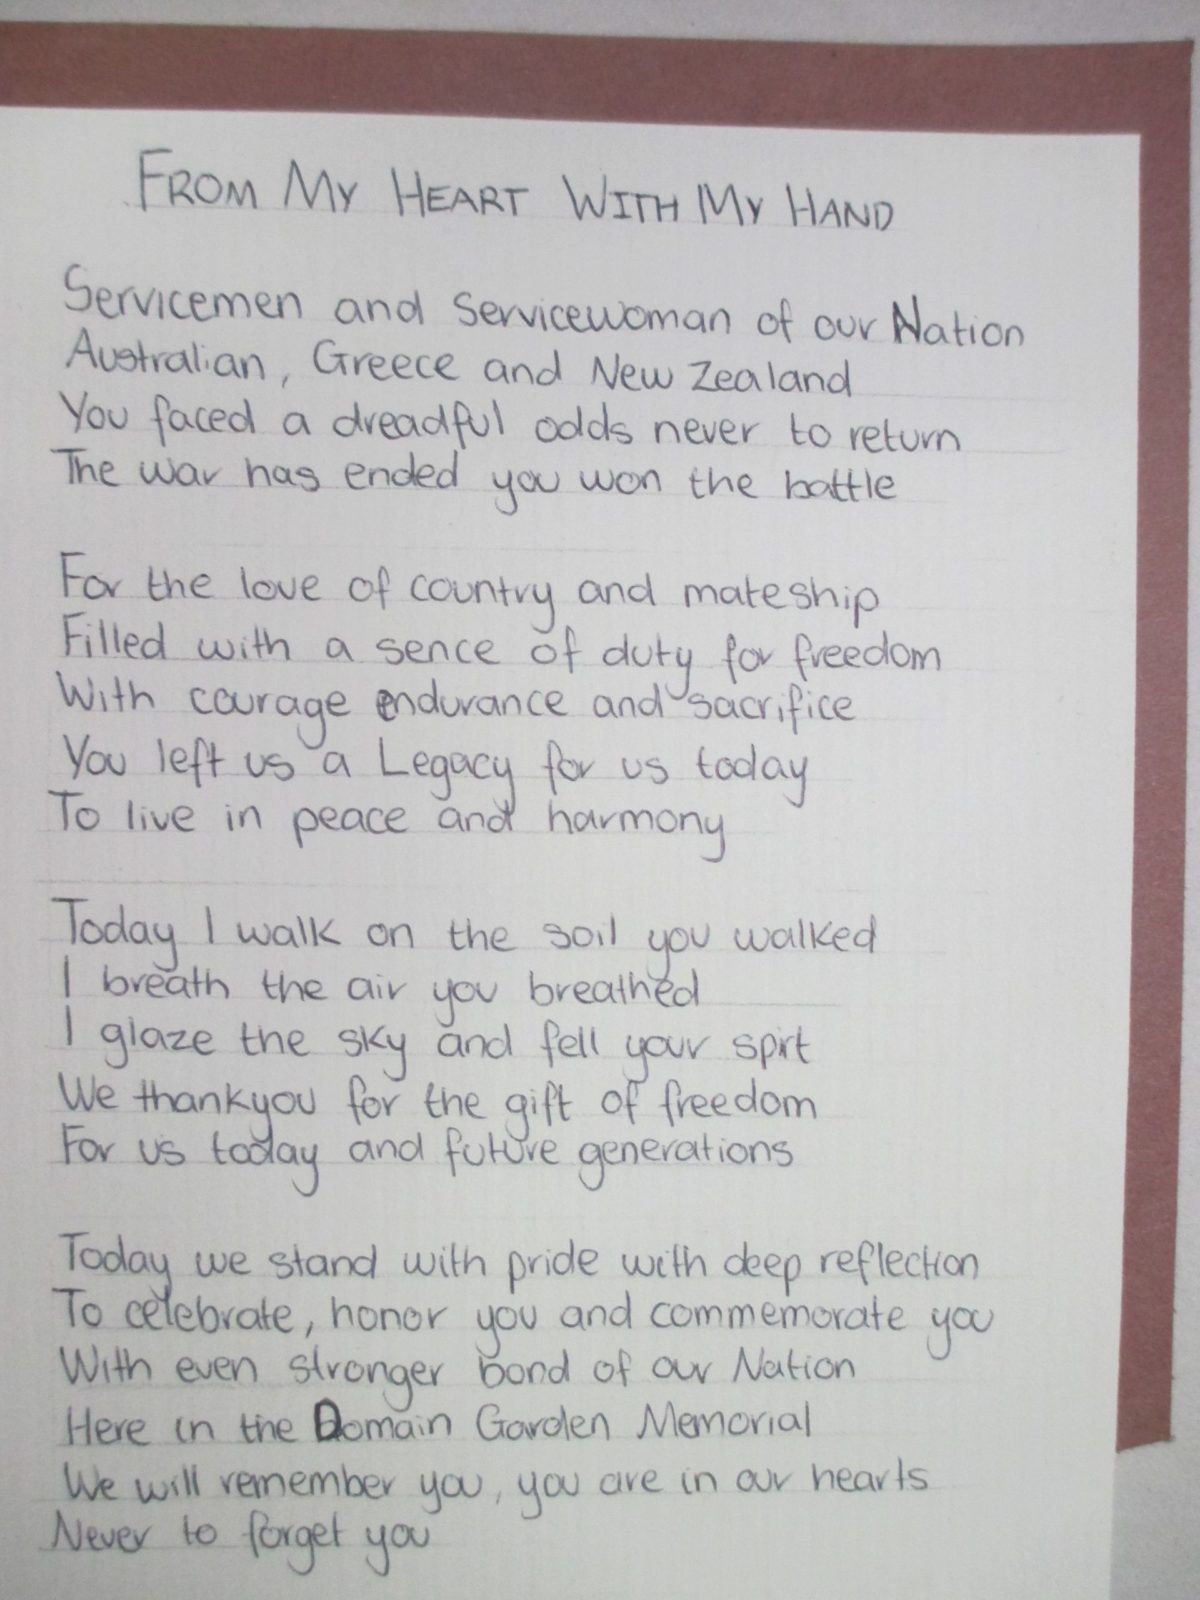 FROM MY HEART WITH MY HAND
Servicemen and Servicewoman of our Nation
Australian, Greece and New Zealand
You faced a dreadful odds never to return
The war has ended you won the battle
For the love of country and mateship
Filled with a sence of duty for freedom
With courage endurance and sacrifice
You left us a Legacy for us today
To live in peace and harmony
Today I walk on the soil you walked
I breath the air you breathed
I glaze the sky and fell your spirt
We thankyou for the gift of freedom
For us today and future generations
Today we stand with pride with deep reflection
To celebrate, honor you and commemorate you
With even stronger bond of our Nation
Here in the Domain Garden Memorial
We will remember you, you are in our hearts
Never to forget you